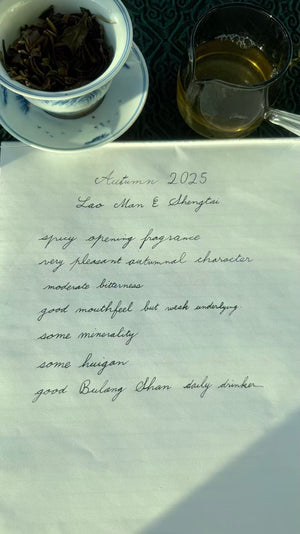 Autumn 2025
Lao Man E Shengtai
spicy opening fragrance
very pleasant autumnal character
moderate bitterness
good mouthfeel but weak underlying
some minerality
some huigan
good Bulang Shan daily drinker